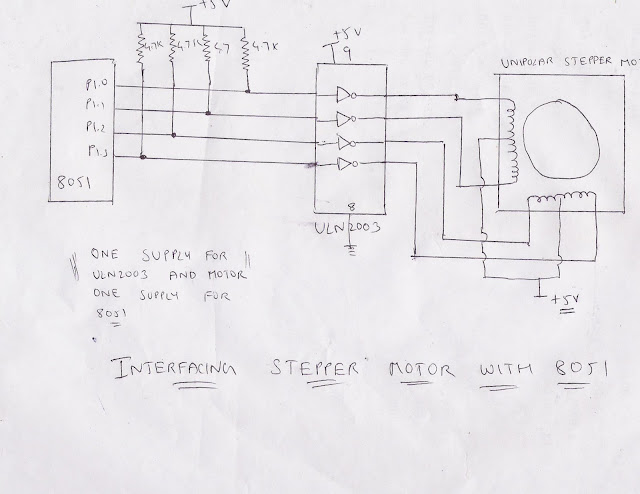 +5V
4.7K 4.7K 4.7 4.7K
+5V
9
UNIPOLAR STEPPER MOT
P1.0
P1.1
P1.2
P1.3
8051
8
ULN2003
ONE SUPPLY FOR
ULN2003 AND MOTOR
ONE SUPPLY FOR
8051
+5V
INTERFACING STEPPER MOTOR WITH 8051